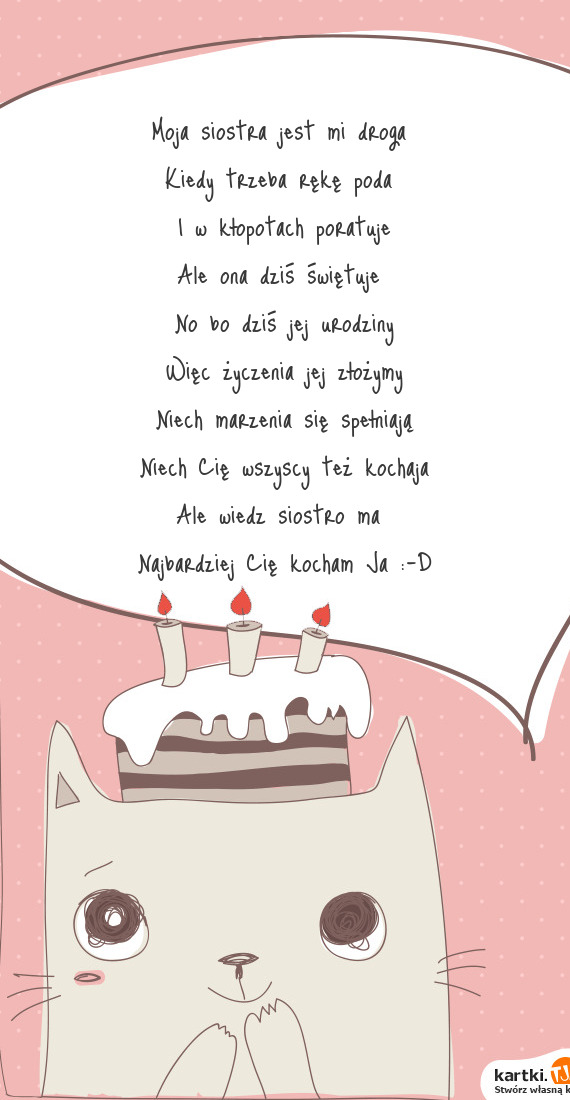 Moja siostra jest mi droga
Kiedy trzeba rękę poda
I w kłopotach poratuje
Ale ona dziś świętuje
No bo dziś jej urodziny
Więc życzenia jej złożymy
Niech marzenia się spełniają
Niech Cię wszyscy też kochaja
Ale wiedz siostro ma
Najbardziej Cię kocham Ja :-D
kartki.TJ
Stwórz własną k